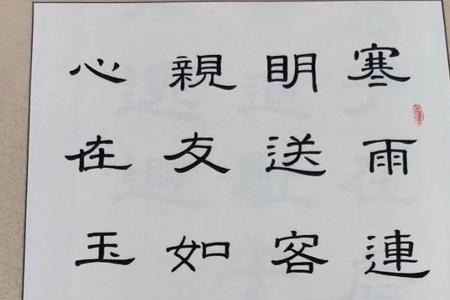 寒雨連
明送客
親友如
心在玉